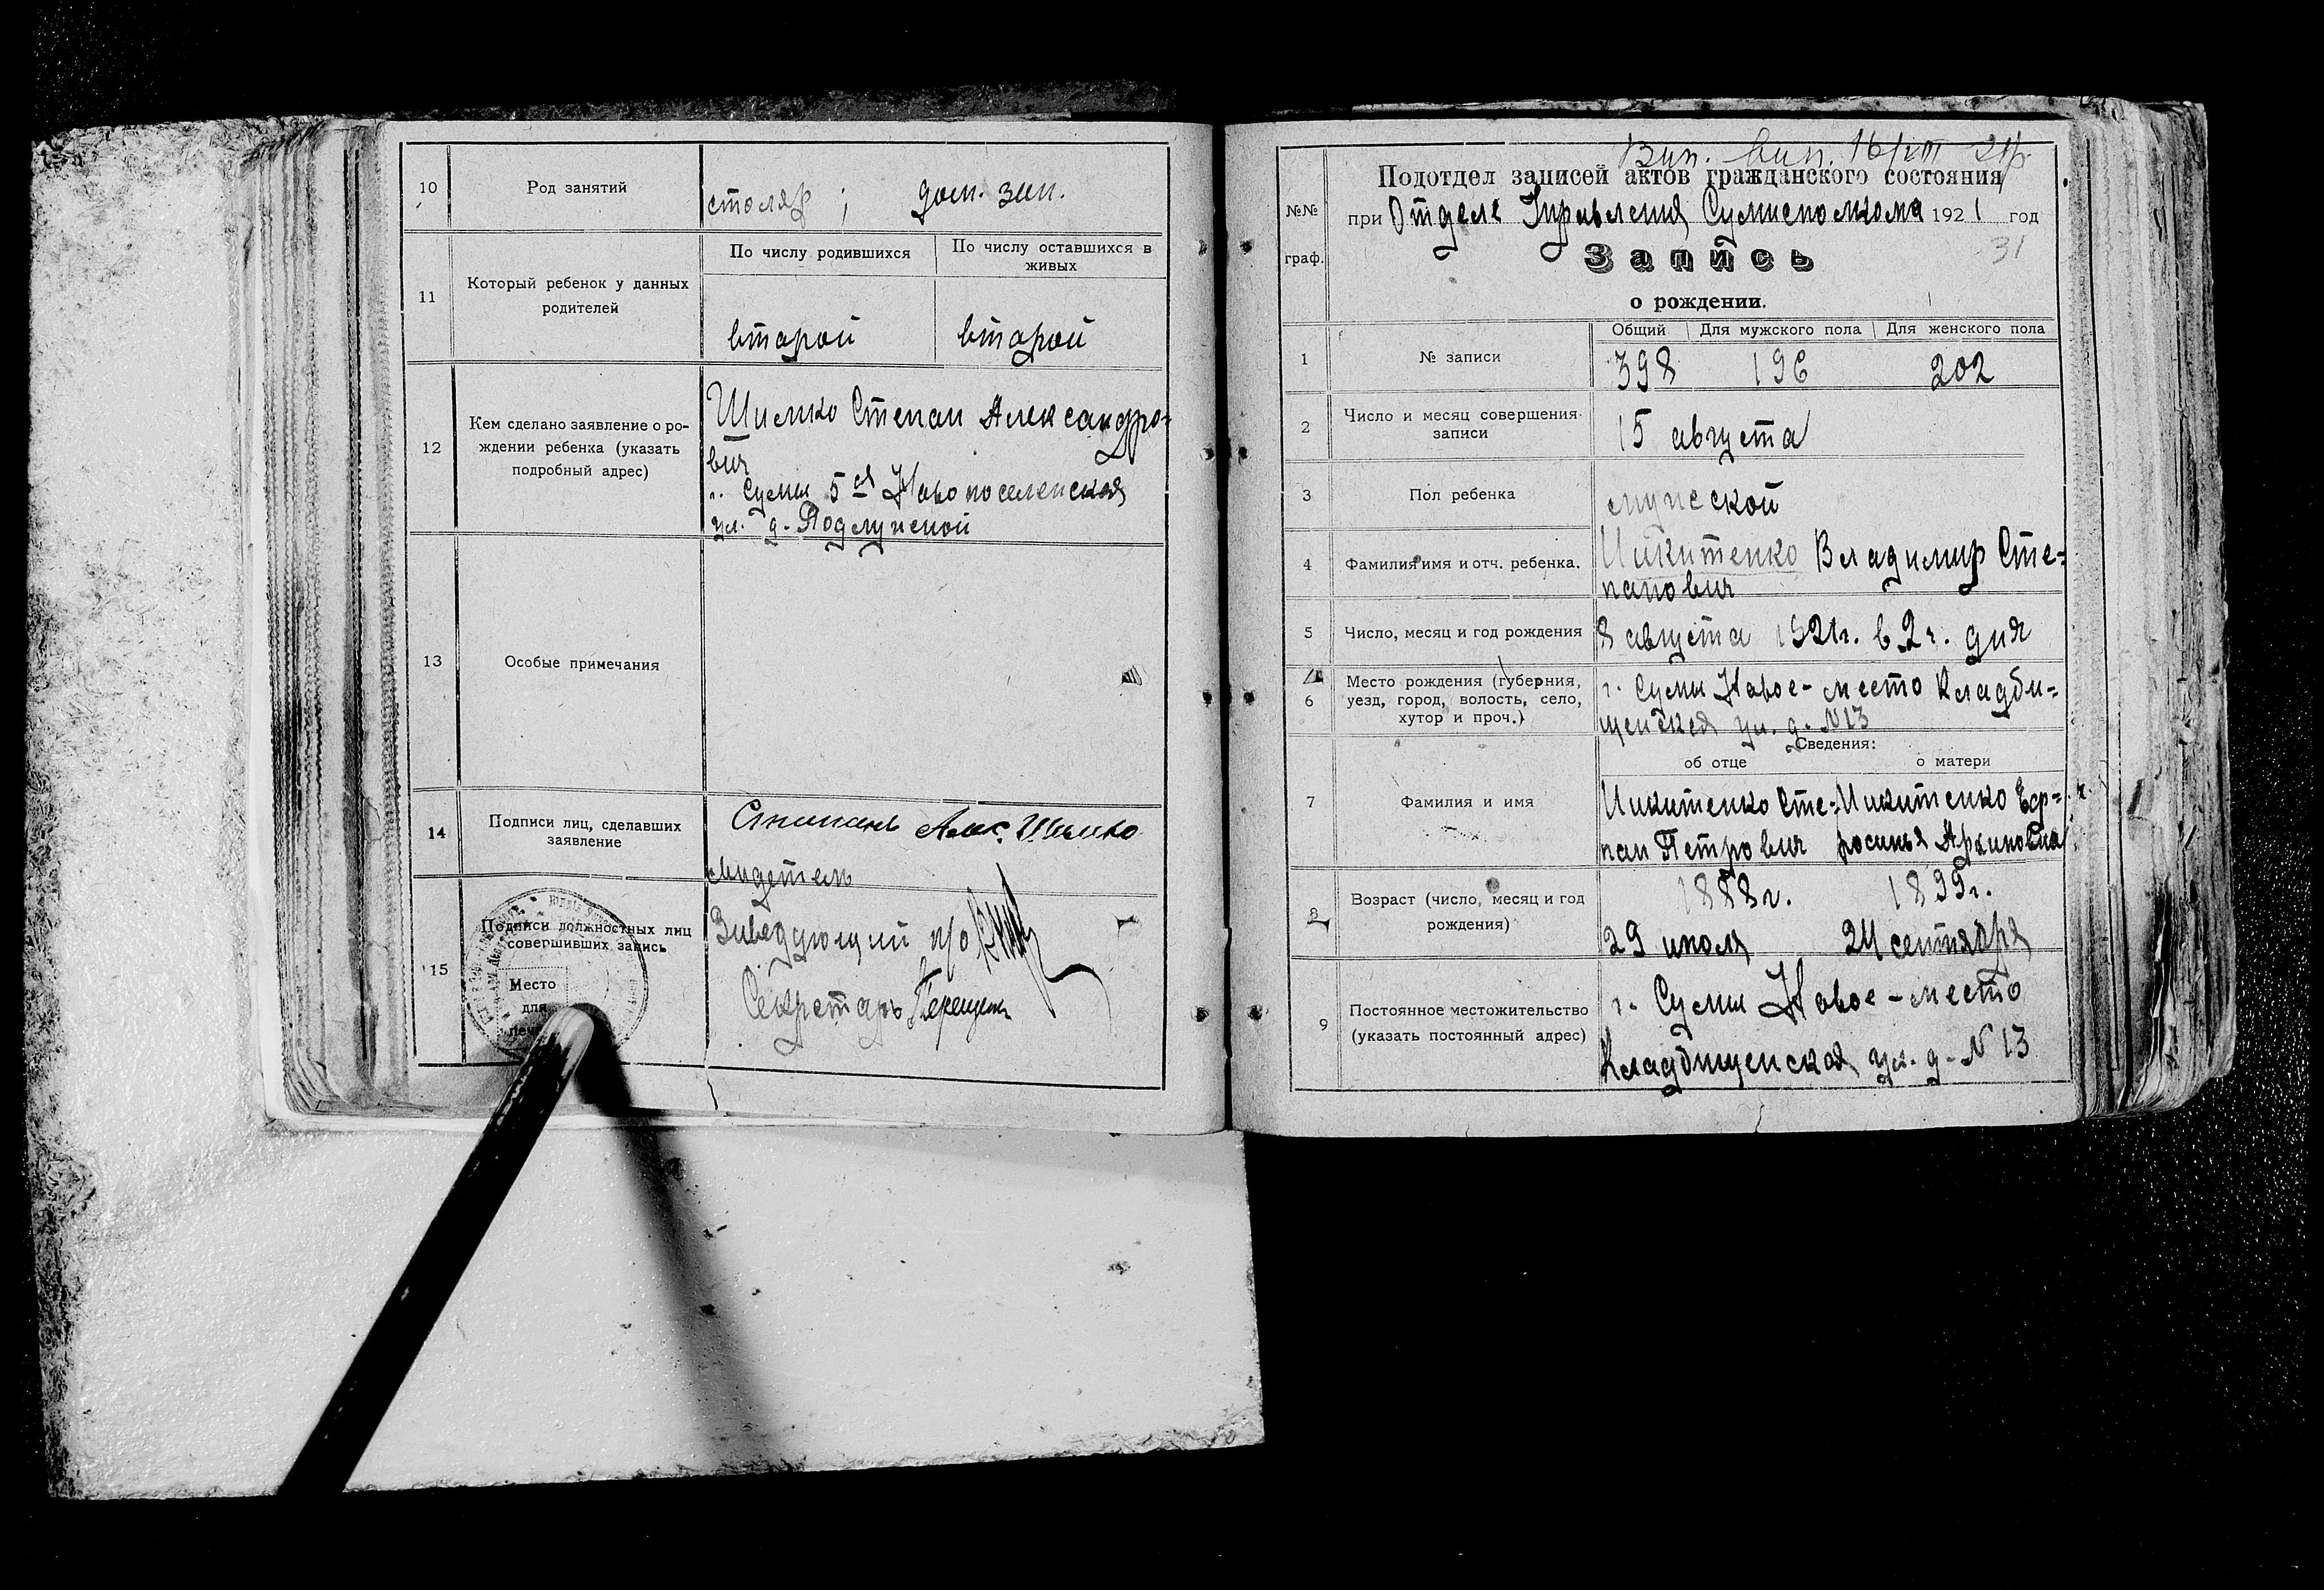 10
Род занятий
столяр ; дом. зан.
11
Который ребенок у данных
родителей
По числу родившихся
По числу оставшихся в
живых
второй
второй
12
Кем сделано заявление о ро-
ждении ребенка (указать
подробный адрес)
Шимко Степан Александро-
вич
г. Сумы 5ая Новопоселенская
ул. д. Подлужной
13
Особые примечания
14
Подписи лиц, сделавших
заявление
Степанъ Алек. Шимко
свидетель
15
Подписи должностных лиц
совершивших запись
Место
для
печ
Заведующий п/о
Секретарь
Вип. вип. 16/VIII 21р.
№№
граф.
Подотдел записей актов гражданского состояния
при Отделе Управления Сумисполкома 1921 год
31
Запись
о рождении.
1
№ записи
Общий
Для мужского пола
Для женского пола
398
196
202
2
Число и месяц совершения
записи
15 августа
3
Пол ребенка
мужской
4
Фамилия имя и отч. ребенка.
Никитенко Владимир Сте-
панович
5
Число, месяц и год рождения
8 августа 1921г. в 2 ч. дня
6
Место рождения (губерния,
уезд, город, волость, село,
хутор и проч.)
г. Сумы Новое-место Кладби-
щенская ул. д. №13
Сведения:
об отце
о матери
7
Фамилия и имя
Никитенко Сте-
пан Петрович
Никитенко Еф-
росинья Архиповна
8
Возраст (число, месяц и год
рождения)
1888г.
29 июля
1899г.
24 сентября
9
Постоянное местожительство
(указать постоянный адрес)
г. Сумы Новое-место
Кладбищенская ул. д. №13